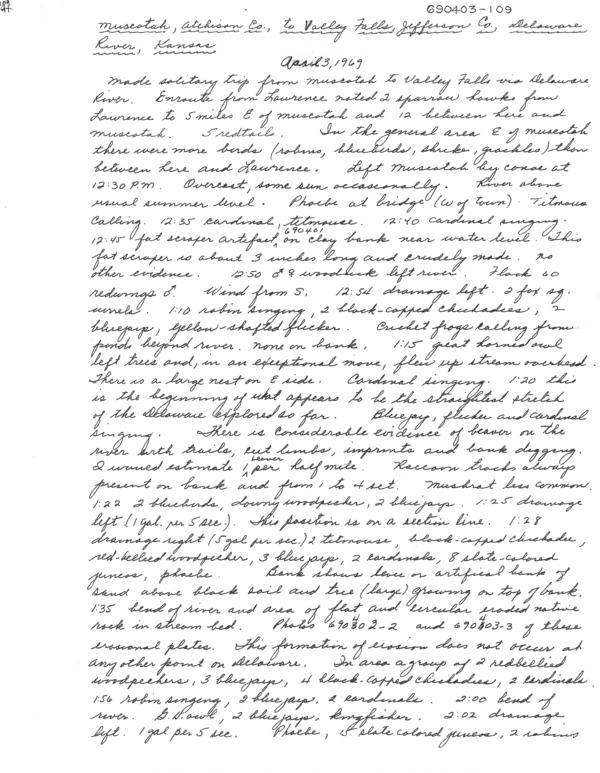 690403-109
Muscotah, Atchison Co., to Valley Falls, Jefferson Co., Delaware
River, Kansas
April 3, 1969
Made solitary trip from Muscotah to Valley Falls via Delaware
River. Enroute from Lawrence noted 2 sparrow hawks from
Lawrence to 5 miles E of Muscotah and 12 between here and
Muscotah. 5 redtail. In the general area E of Muscotah
there were more birds (robins, bluebirds, shrike, grackles) than
between here and Lawrence. Left Muscotah by canoe at
12:30 P.M. Overcast, some sun occasionally. River above
usual summer level. Phoebe at bridge (W of town). Titmouse
calling. 12:35 cardinal, titmouse. 12:40 cardinal singing.
12:45 fat scraper artefact, 690401 on clay bank near water level. This
fat scraper is about 3 inches long and crudely made. No
other evidence. 12:50 ♂ ♀ woodduck left river. Flock 60
redwings ♂. Wind from S. 12:54 drainage left. 2 fox sq-
uirrels. 1:10 robin singing, 2 black-capped chickadees, 2
bluejays, yellow-shafted flicker. Cricket frogs calling from
ponds beyond river. None on bank. 1:15 great horned owl
left trees and, in an exceptional move, flew up stream overhead.
There is a large nest on E side. Cardinal singing. 1:20 this
is the beginning of what appears to be the straightest stretch
of the Delaware explored so far. Bluejay, flicker and cardinal
singing. There is considerable evidence of beaver on the
river with trails, cut limbs, imprints and bank digging.
I would estimate 1 beaver per half mile. Raccoon tracks always
present on bank and from 1 to 4 set. Muskrat less common.
1:22 2 bluebirds, downy woodpecker, 2 bluejays. 1:25 drainage
left (1 gal. per 5 sec.). This position is on a section line. 1:28
drainage right (5 gal per sec.) 2 titmouse, black-capped chickadee,
red-bellied woodpecker, 3 bluejays, 2 cardinals, 8 slate-colored
juncos, phoebe. Bank shows levee or artifical bank of
sand above black soil and tree (large) growing on top of bank.
1:35 bend of river and area of flat and circular eroded native
rock in stream bed. Photos 690402-2 and 690403-3 of these
erosional plates. This formation of erosion does not occur at
any other point on Delaware. In area a group of 2 redbellied
woodpeckers, 3 bluejays, 4 black-capped chickadees, 2 cardinals.
1:56 robin singing, 2 bluejays, 2 cardinals. 2:00 bend of
river. G.H. owl, 2 bluejays, kingfisher. 2:02 drainage
left. 1 gal per 5 sec. Phoebe, slate colored juncos, 2 robins